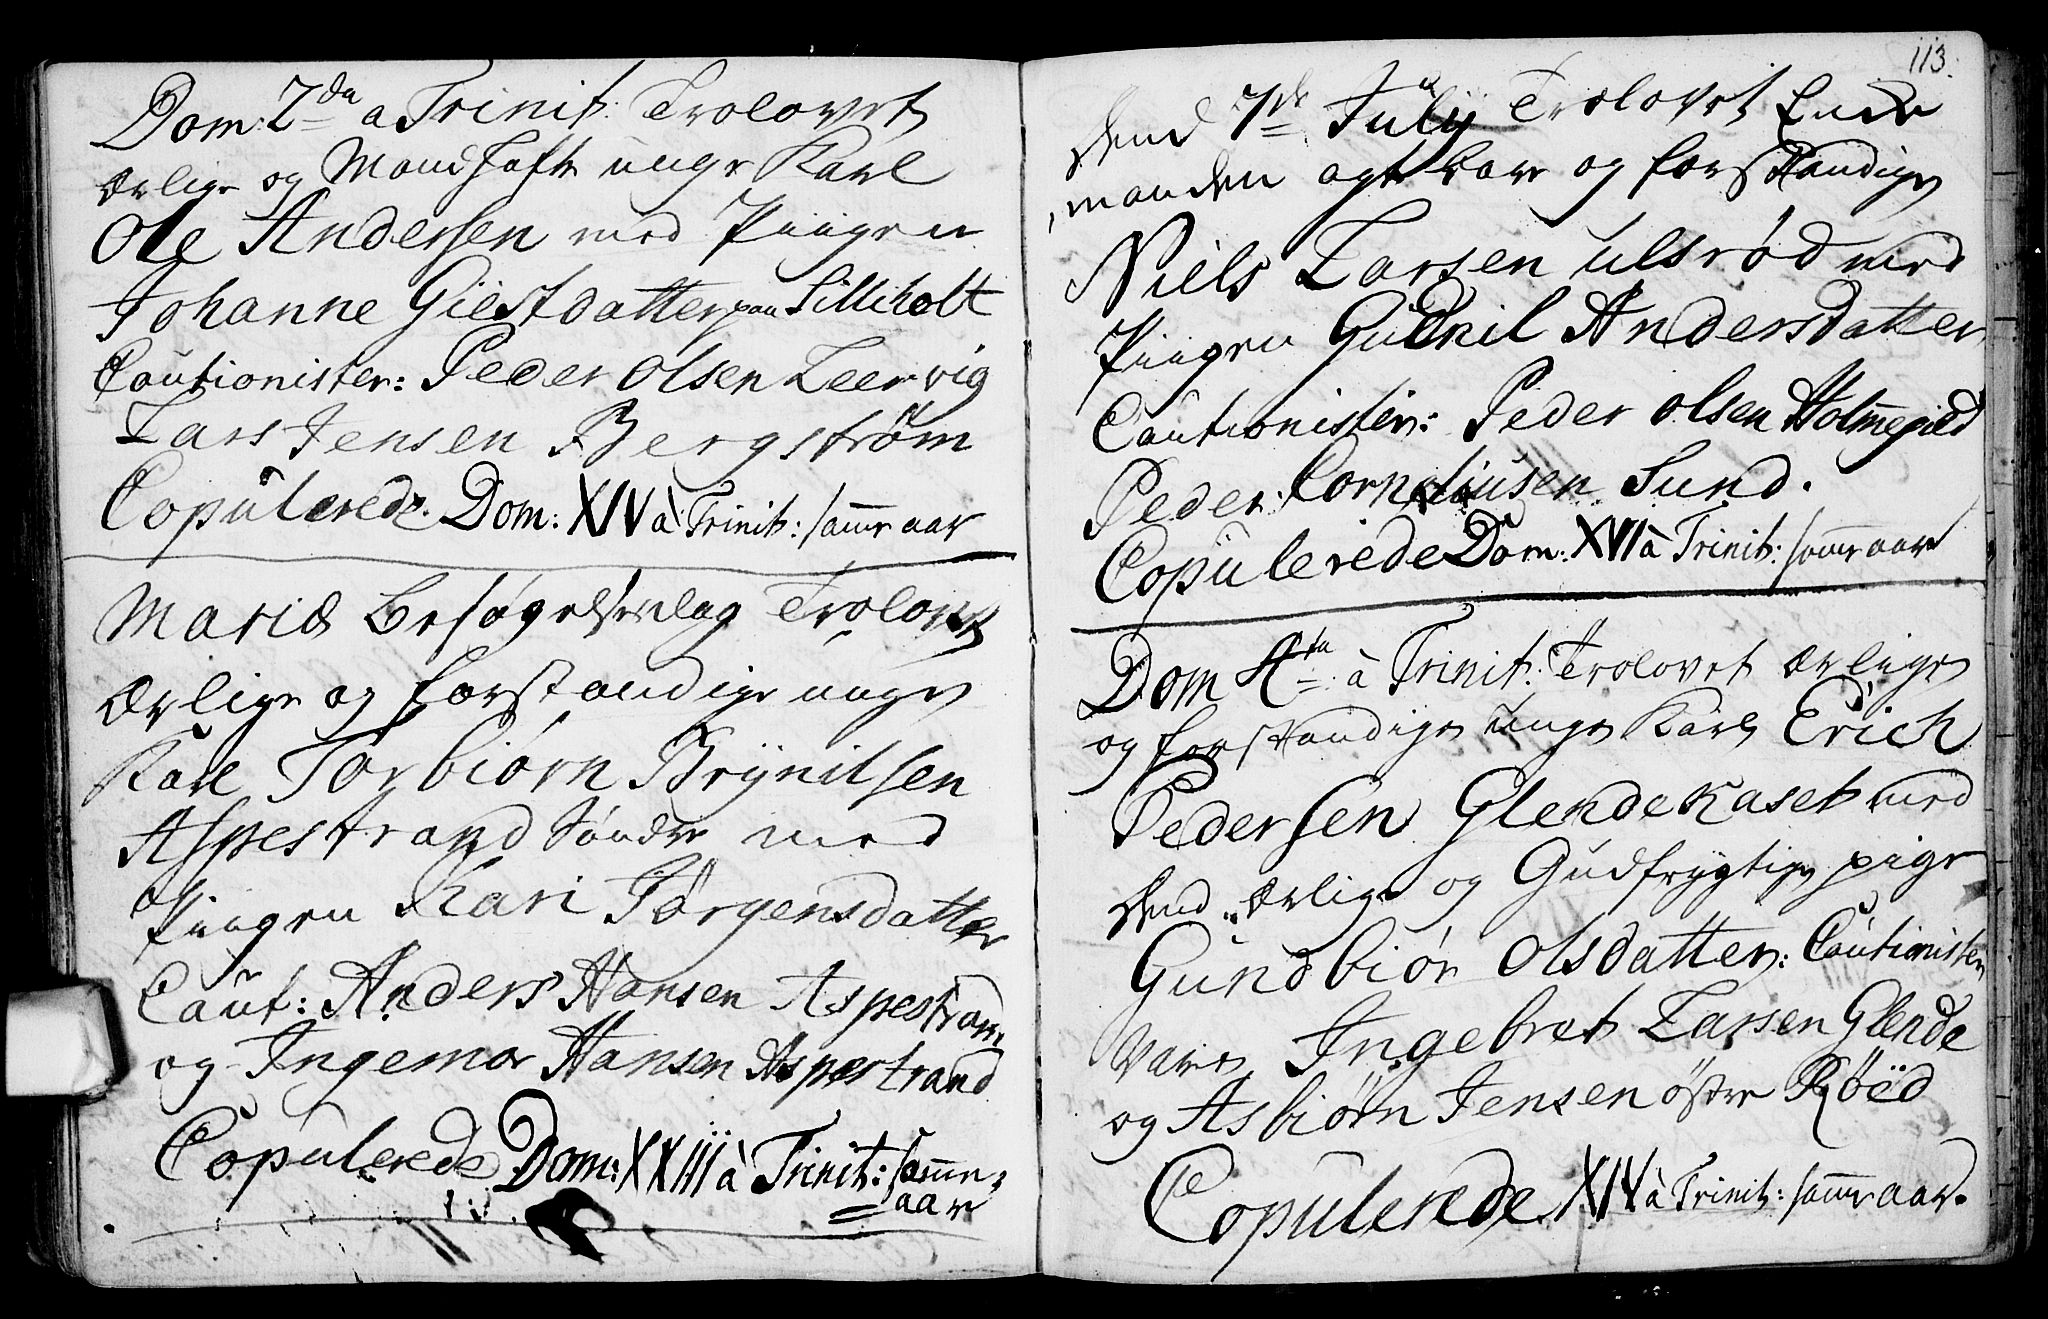 Dom: 2da a Trinit: Trolovet
ærlige og Mandhafte unge Karl
Ole Andersen med Piigen
Johanne Giestdatter paa Silleholt
Cautionister: Peder Olsen Leervig
Lars Jensen Bergstrøm
Copulerede. Dom: XIV à Trinit: samme aar
Mariæ Besøgelsesdag Trolovet
Ærlige og forstandige unge
Karl Torbiørn Brynilsen
Aspestrand Søndre med
Piigen Kari Jørgensdatter
Caut: Anders Hansen Aspestrand
og Ingemar Hansen Aspestrand
Copulerede Dom: XXIII à Trinit: samme
aar
113.
Dend 7de July Trolovet Enke
manden agtbare og forstandige
Niels Larsen Ulsrød med
Piigen Gunnil Andersdatter
Cautionister: Peder Olsen Holmegiled
Peder Corneliusen Sund.
Copulerede Dom: XVI à Trinit: samme aar
Dom 4ta à Trinit: Trolovet ærlige
og forstandige unge Karl Erich
Pedersen Glendekaset med
Dend ærlige og Gudfrygtige pige
Gundbiør Olsdatter: Cautionister
vare Ingebret Larsen Glende
og Asbiørn Jensen østre Røed
Copulerede XIV à Trinit: samme aar.